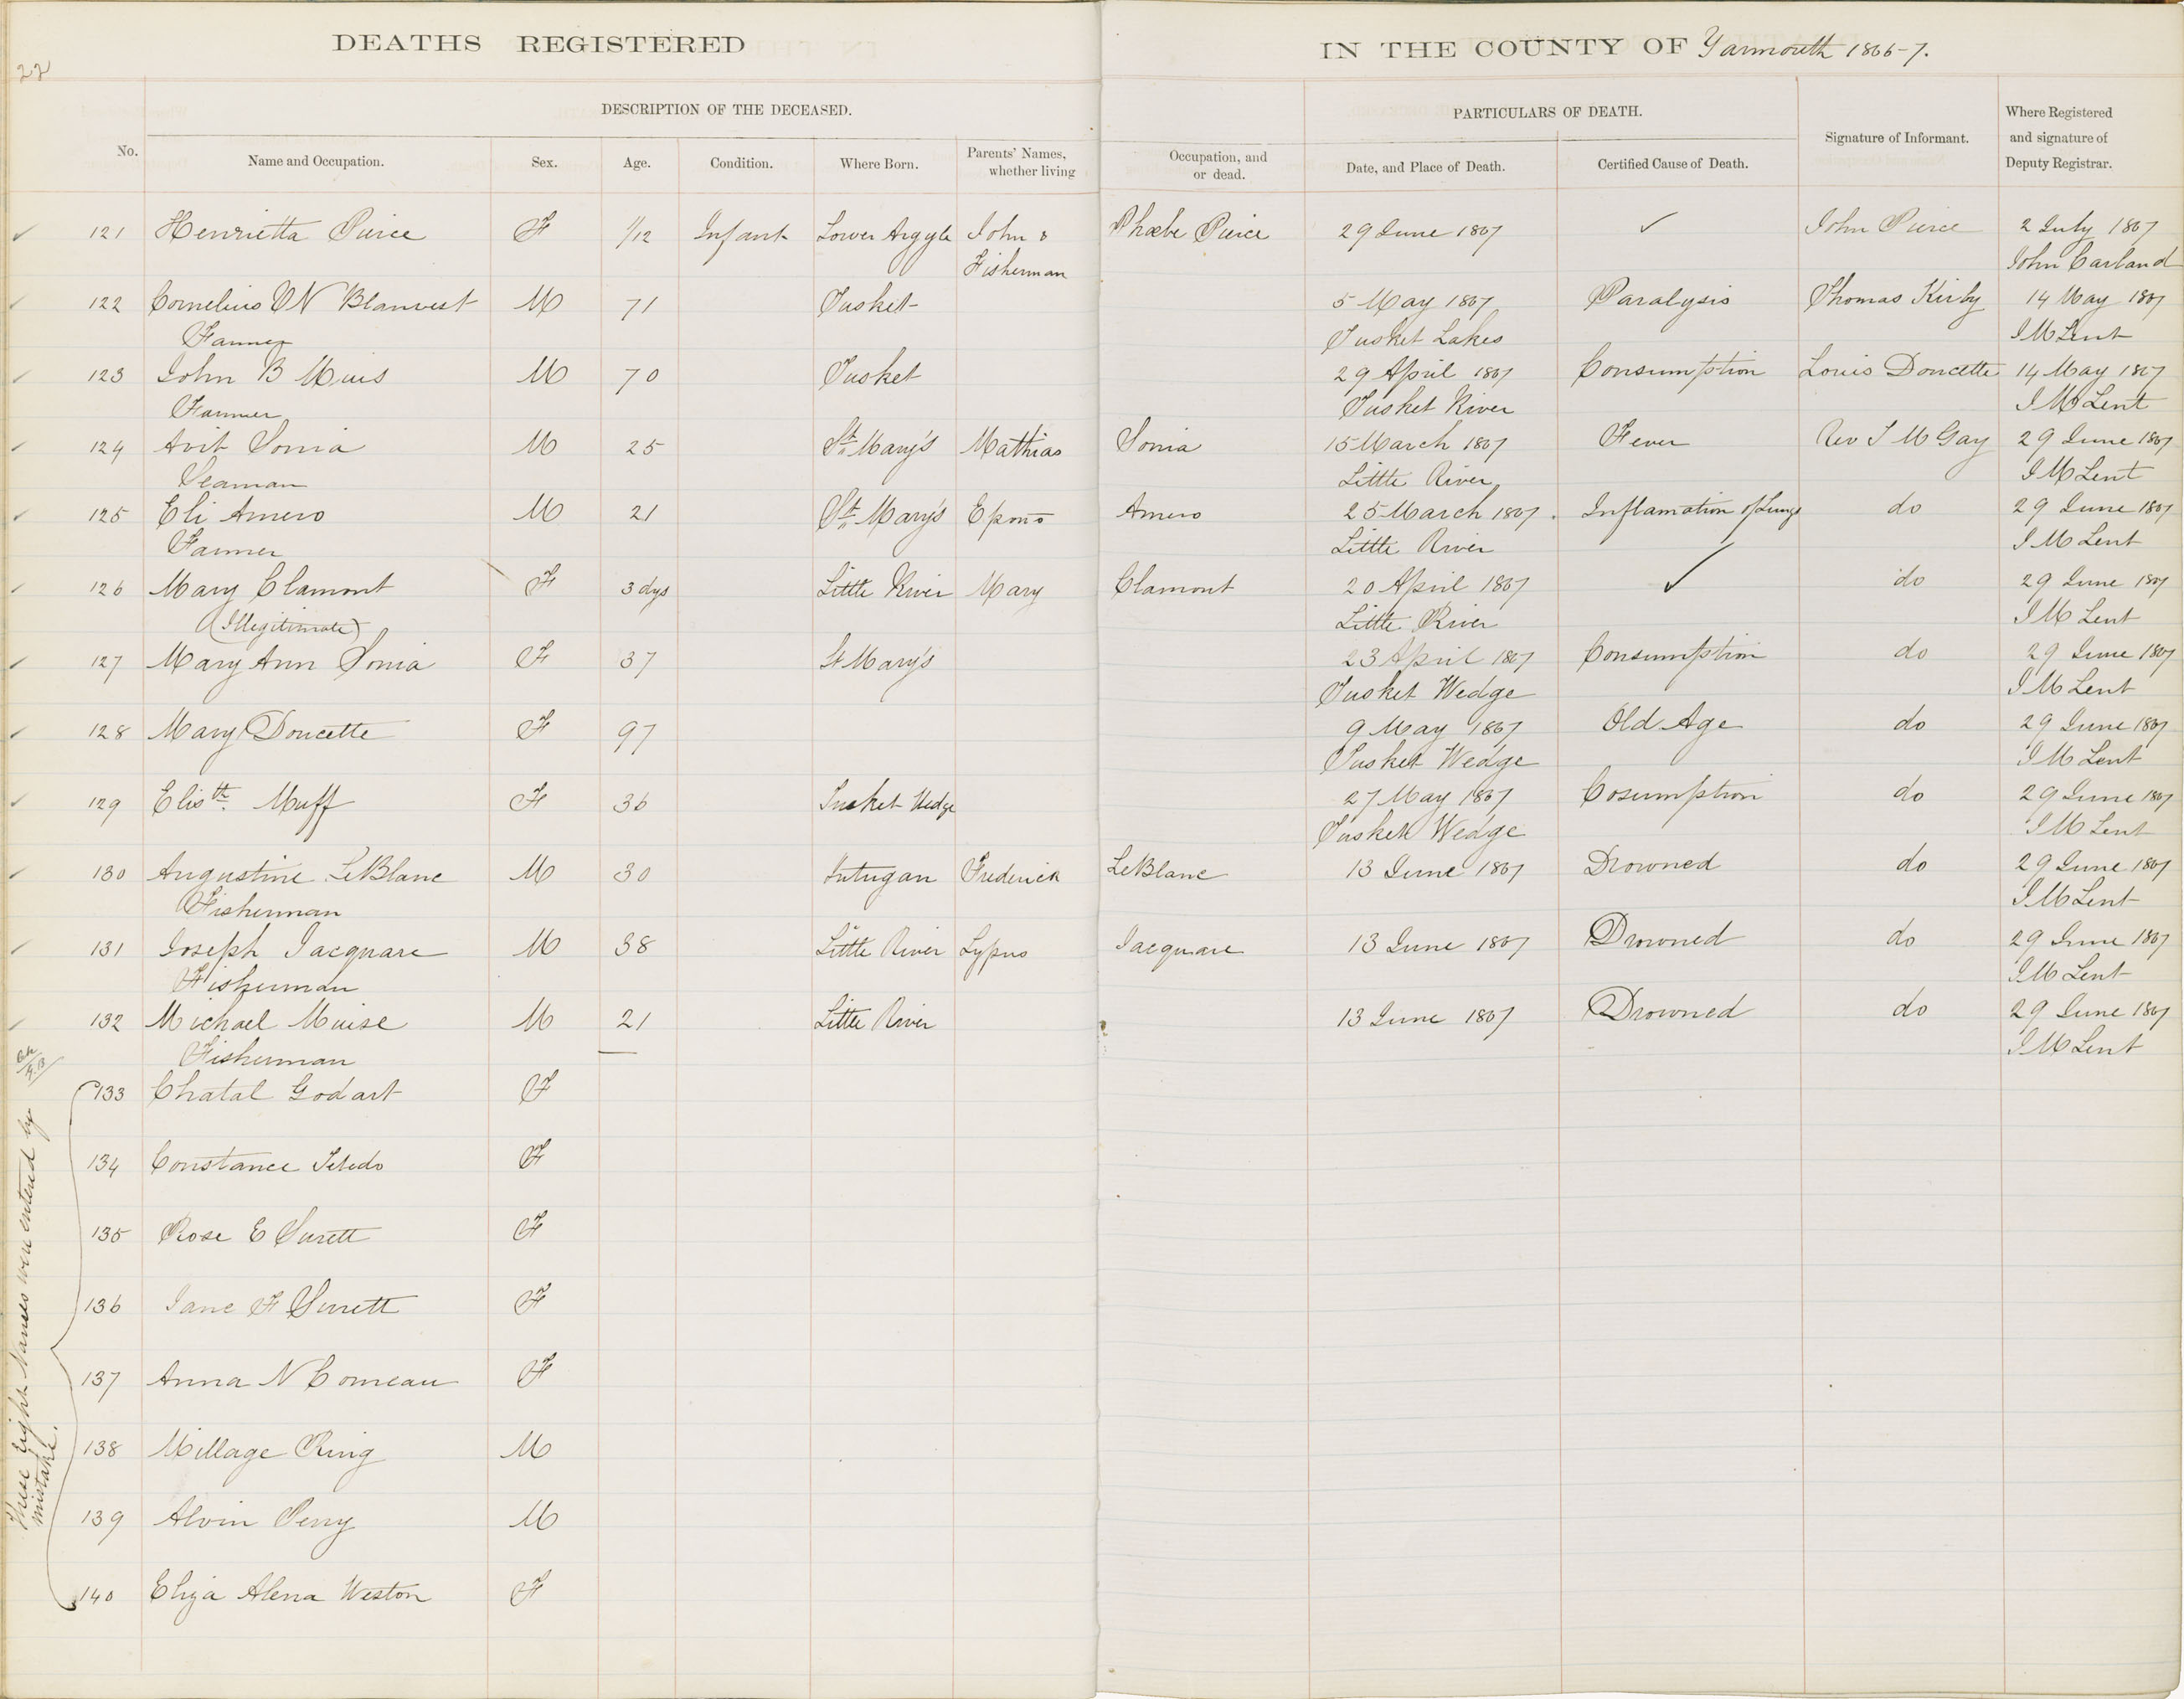 DEATHS REGISTERED IN THE COUNTY OF Yarmouth 1866-7.
22
DESCRIPTION OF THE DECEASED. PARTICULARS OF DEATH.
No. Name and Occupation. Sex. Age. Condition. Where Born. Parents' Names, whether living Occupation, and or dead. Date, and Place of Death. Certified Cause of Death. Signature of Informant. Where Registered and signature of Deputy Registrar.
121 Henrietta Pierce F 1/12 Infant Lower Argyle John & Phœbe Pierce 29 June 1867 ✓ John Pierce 2 July 1867
Fisherman John Carland
122 Cornelius VN Blanvest M 71 Tusket 5 May 1867 Paralysis Thomas Kirby 14 May 1867
Farmer Tusket Lakes I M Lent
123 John B Muis M 70 Tusket 29 April 1867 Consumption Louis Doucette 14 May 1867
Farmer Tusket River I M Lent
124 Avit Sonia M 25 St Mary's Mathias Sonia 15 March 1867 Fever Rev J M Gay 29 June 1867
Seaman Little River I M Lent
125 Eli Amero M 21 St Mary's Amero 25 March 1867. Inflamation of Lungs do 29 June 1867
Farmer Little River I M Lent
126 Mary Clamont F 3 dys Little River Mary Clamont 20 April 1867 ✓ do 29 June 1867
(Illegitimate) Little River I M Lent
127 Mary Ann Sonia F 37 St Mary's 23 April 1867 Consumption do 29 June 1867
Tusket Wedge I M Lent
128 Mary Doucette F 97 9 May 1867 Old Age do 29 June 1867
Tusket Wedge I M Lent
129 Elisth. Muff F 36 Tusket Wedge 27 May 1867 Cosumption do 29 June 1867
Tusket Wedge I M Lent
130 Augustine LeBlanc M 30 Frederick LeBlanc 13 June 1867 Drowned do 29 June 1867
Fisherman I M Lent
131 Joseph Jacquare M 38 Little River Lypus Jacquare 13 June 1867 Drowned do 29 June 1867
Fisherman I M Lent
132 Michael Muise M 21 Little River 13 June 1867 Drowned do 29 June 1867
Fisherman I M Lent
133 Chatal Godart F
134 Constance F
135 Rose E Surett F
136 Jane F Surett F
137 Anna N Comeau F
138 Millage Ring M
139 Alvin Perry M
140 Eliza Alena Weston F
These Eight Names were entered by
mistake.